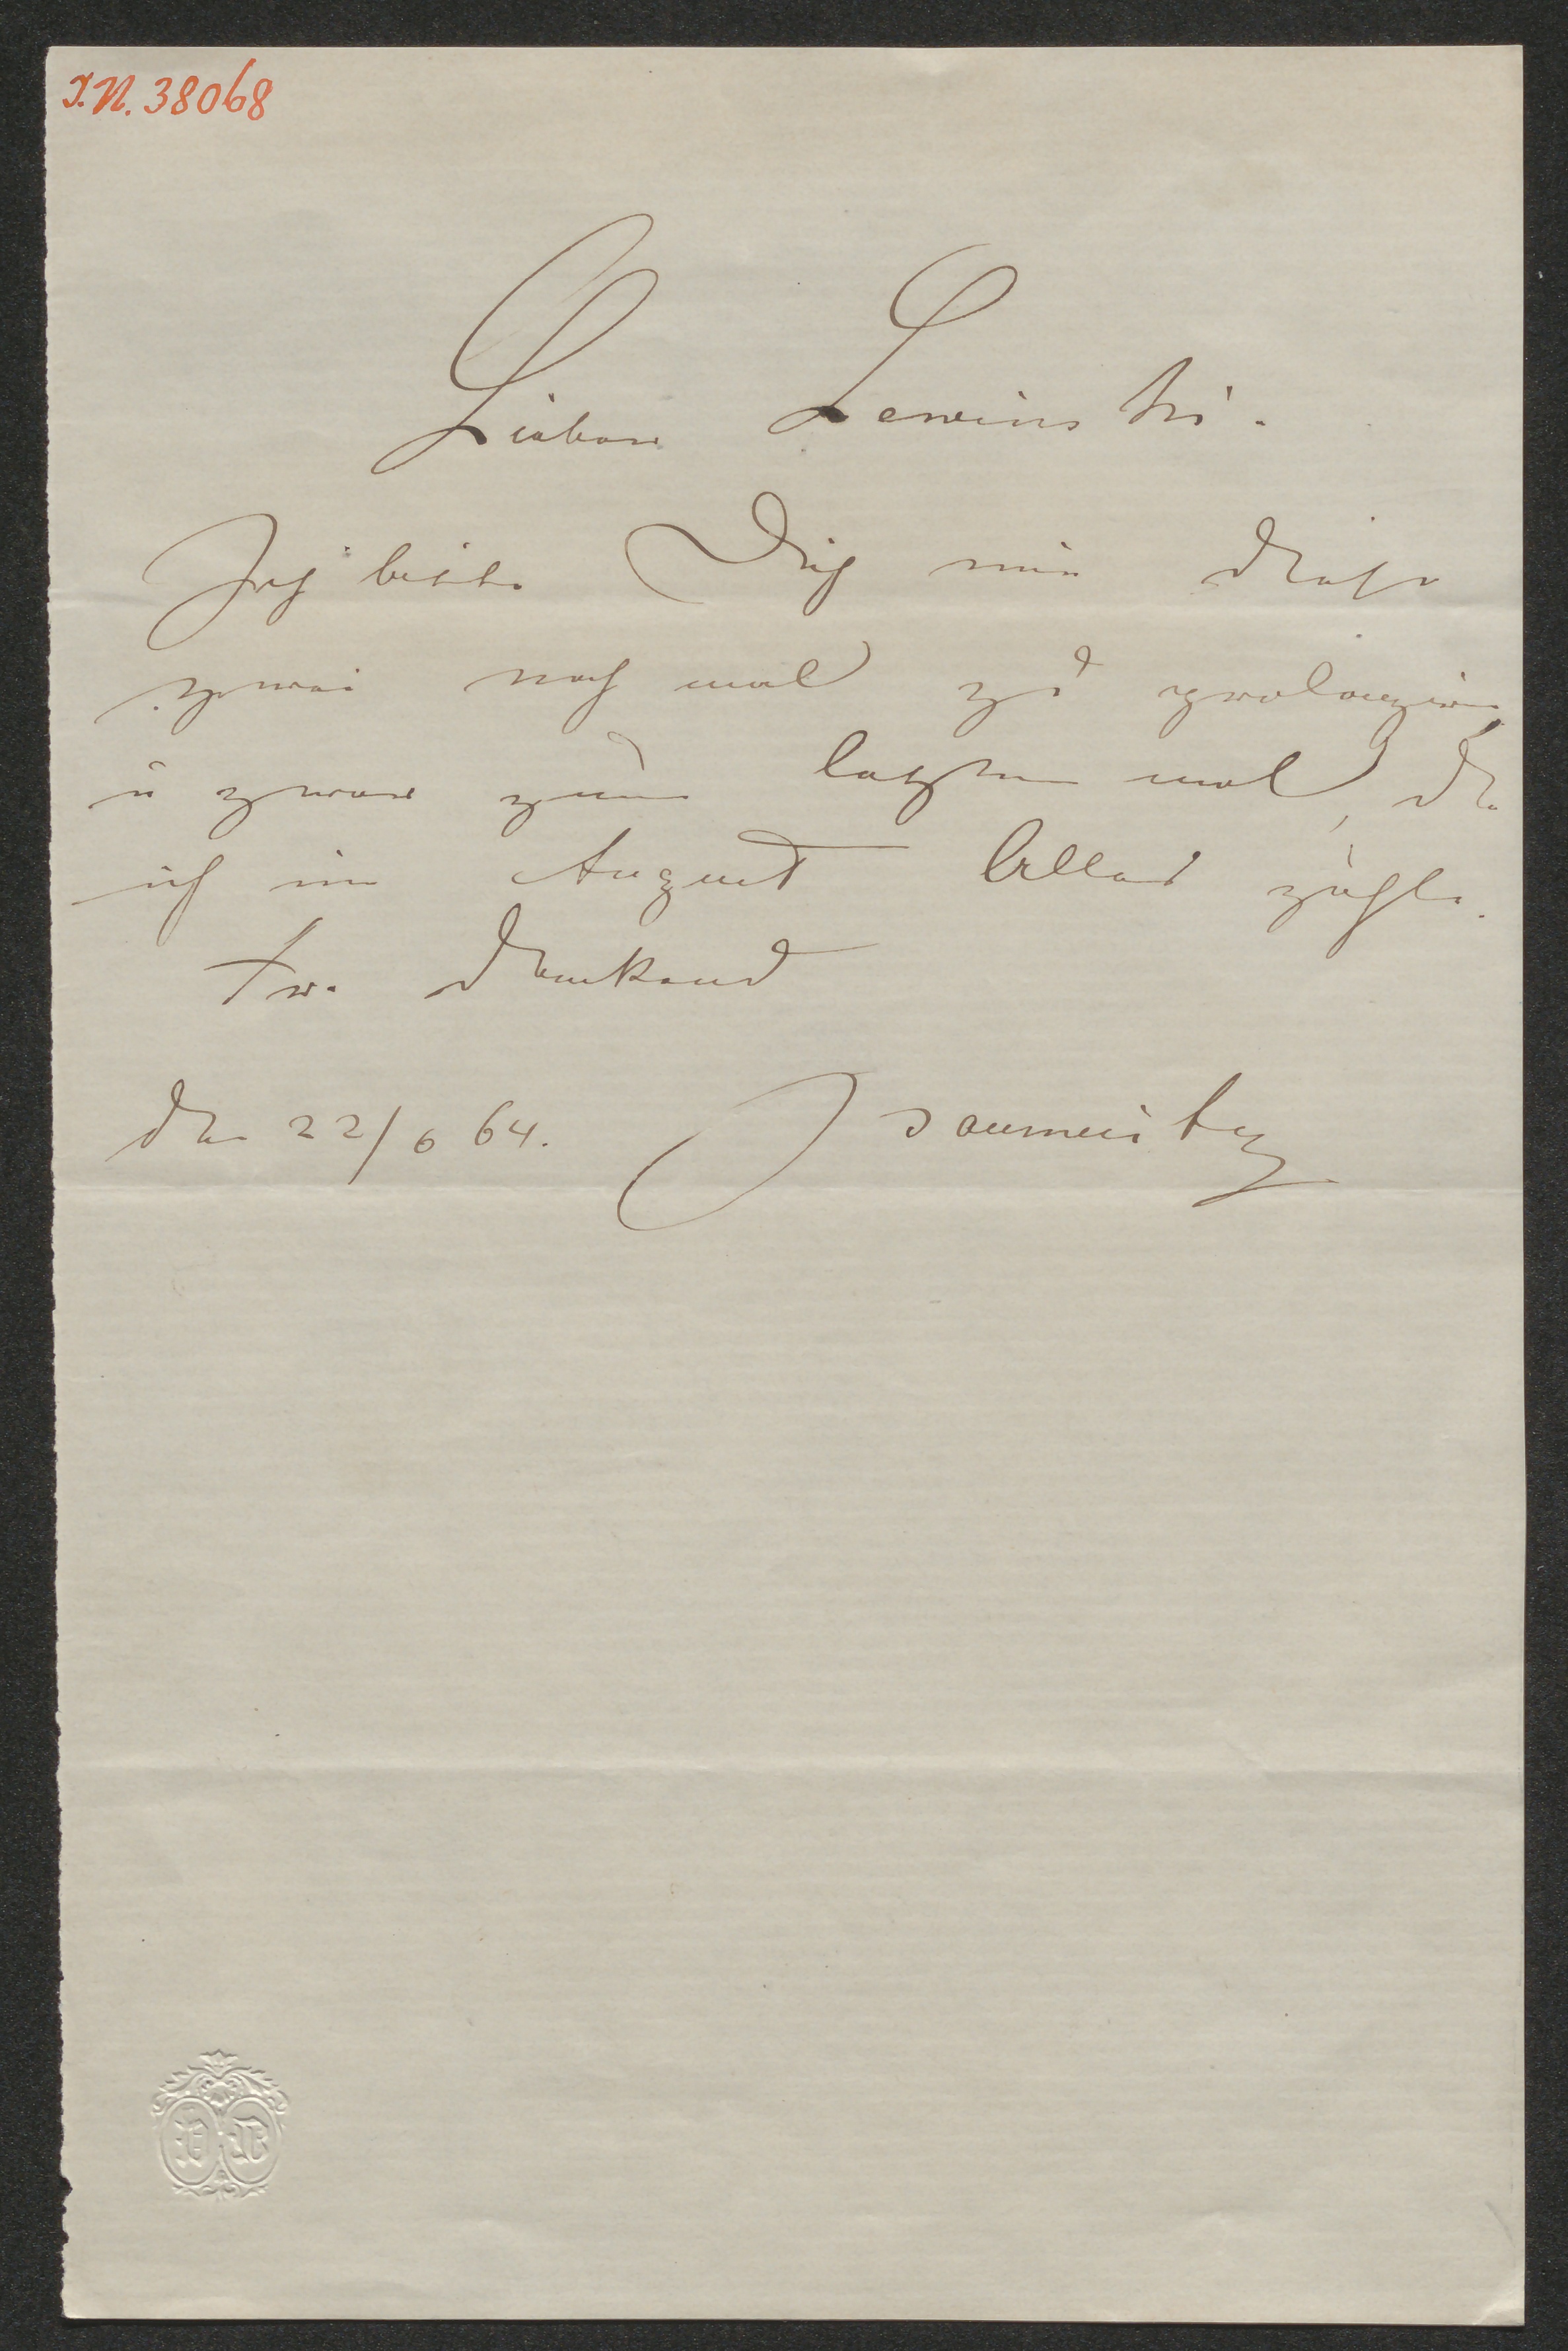 I.N. 38068
Lieber Lewinski.
Ich bitte Dich mir diese
zwei noch mal zu prolongiren,
u zwar zum letzten mal, da
ich im August Alles zahle.
dankend
den 22/6 64.